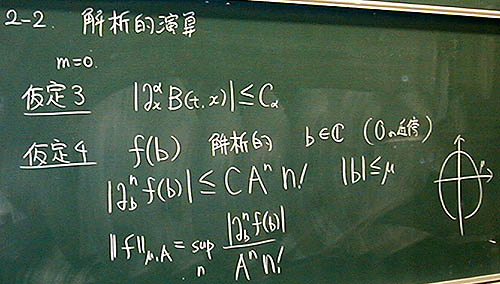 2-2. 解析的演算
m=0.
仮定3 |∂ₓ^α B(t,x)| ≤ C_α
仮定4 f(b) 解析的 b∈ℂ (0の近傍)
|∂_b^n f(b)| ≤ C A^n n! |b| ≤ μ
‖f‖_{μ,A} = sup_n |∂_b^n f(b)| / A^n n!